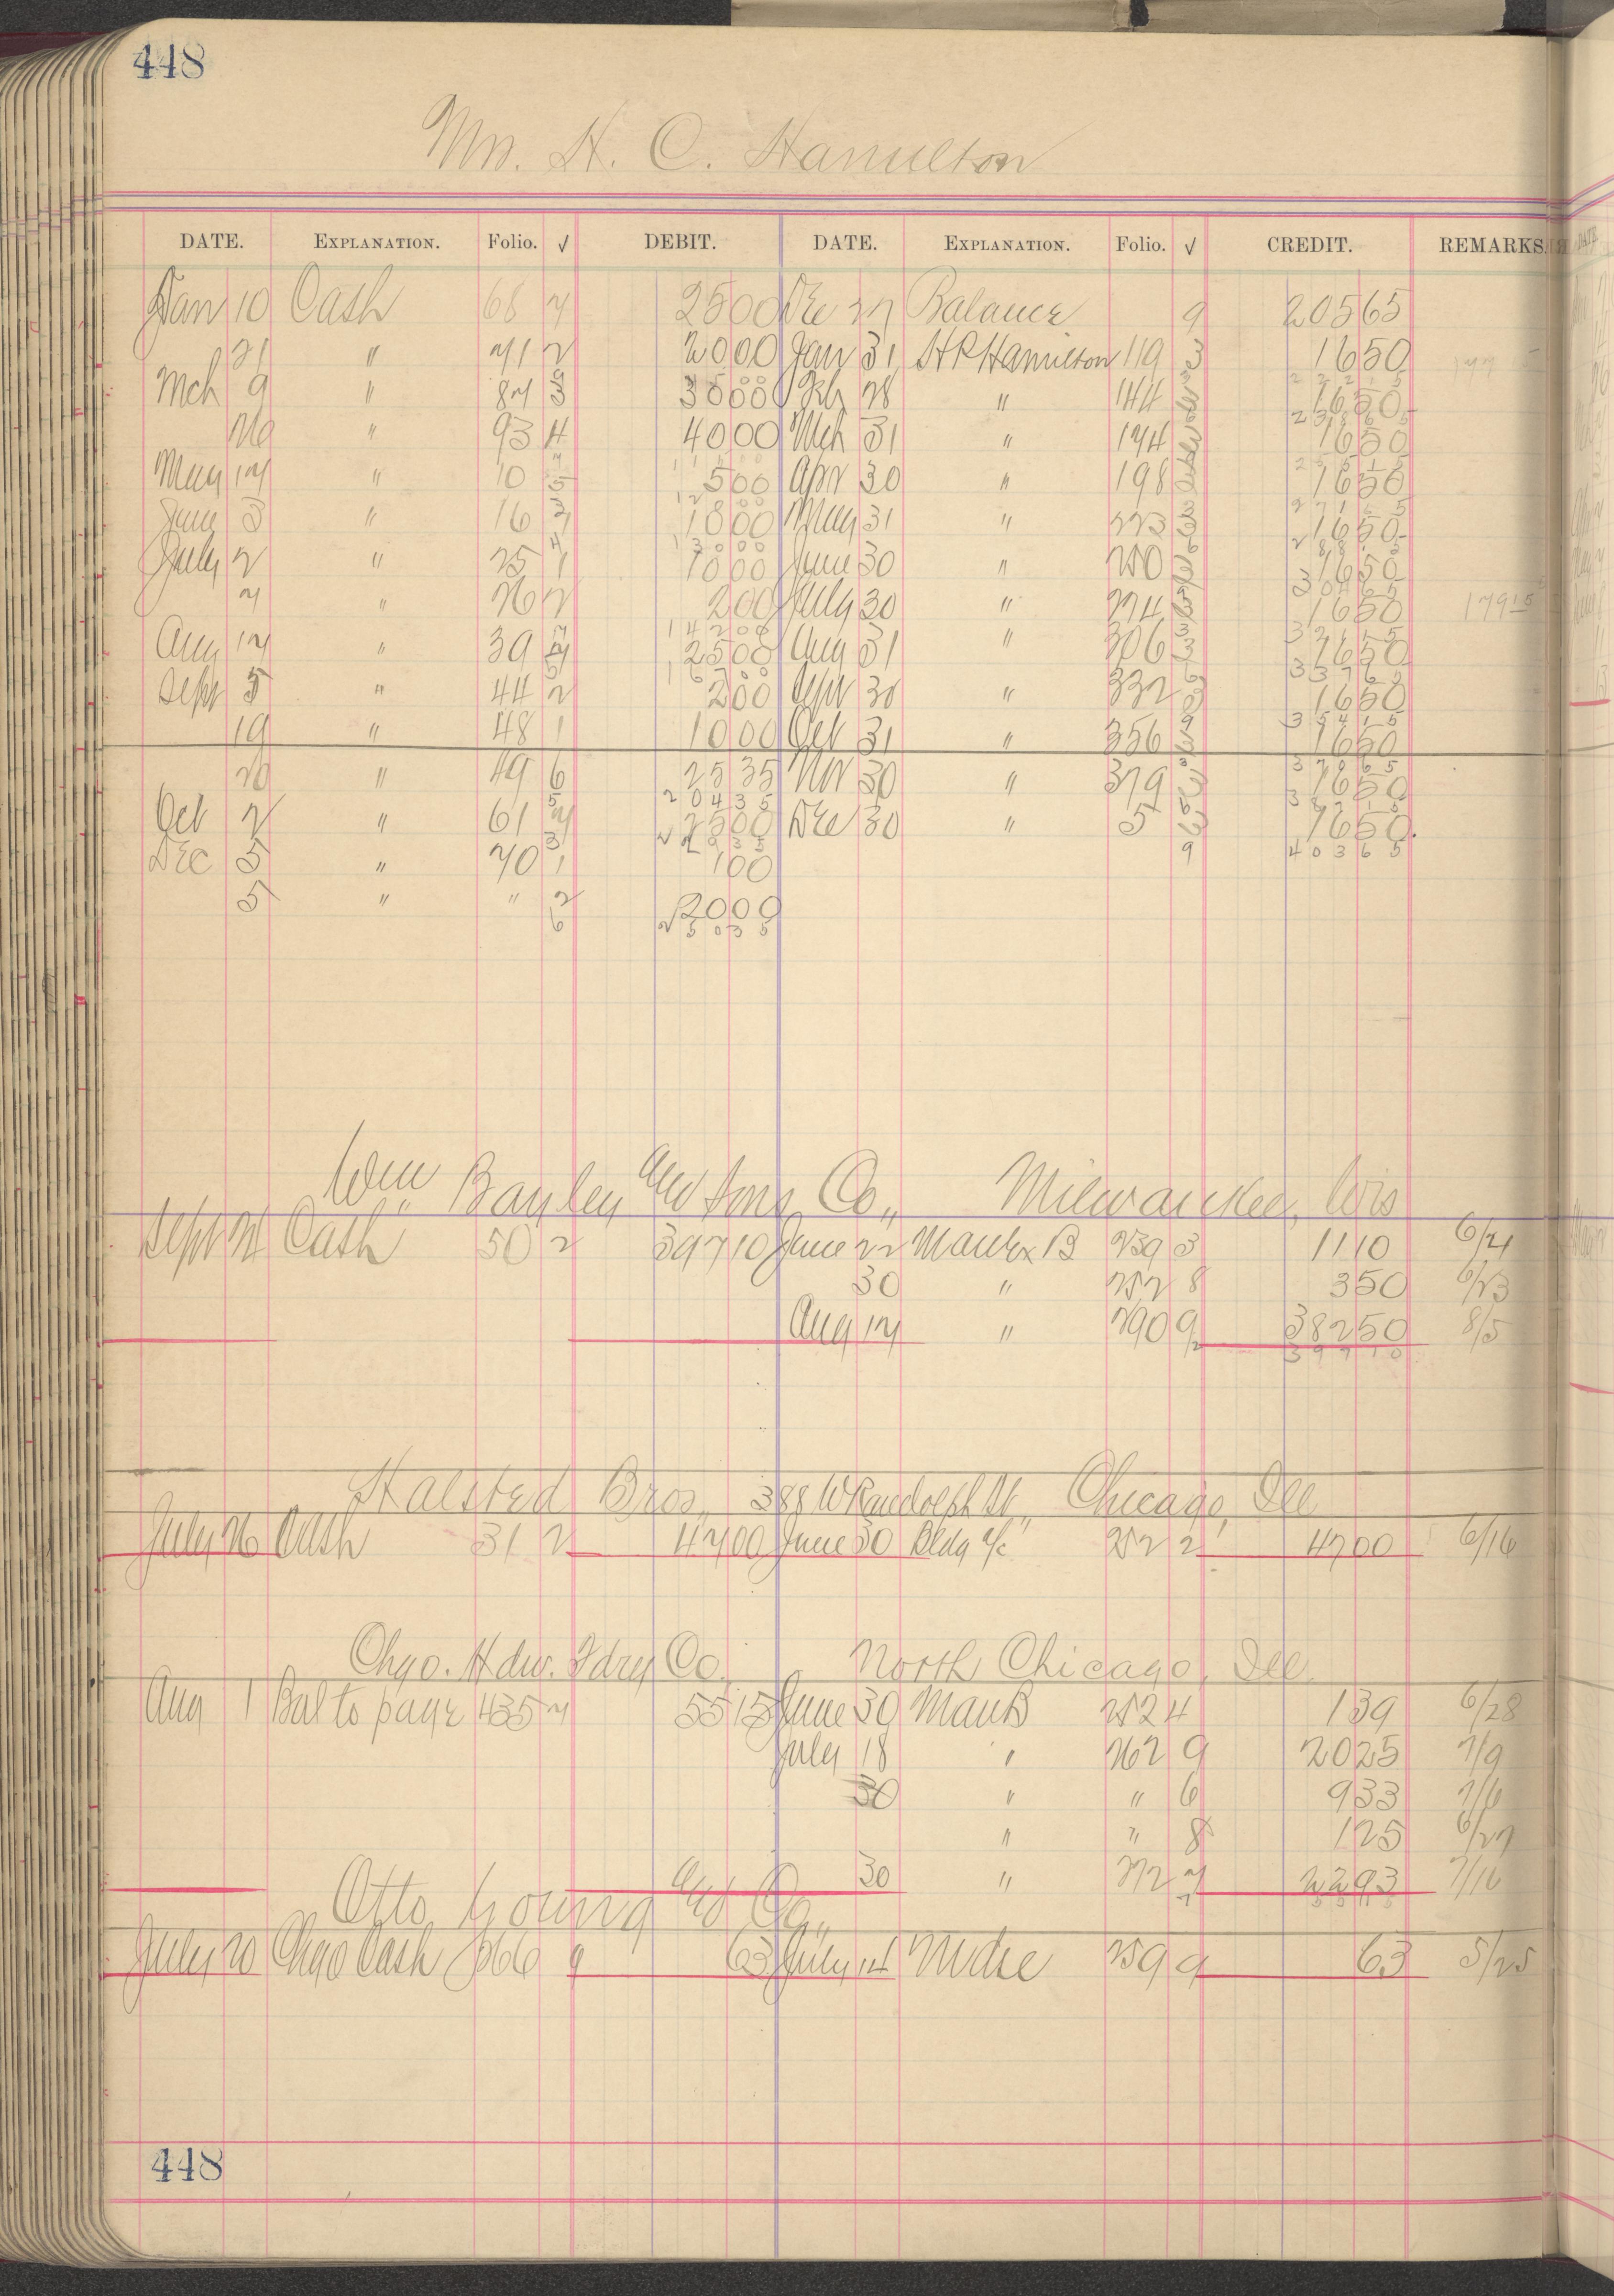 448
Mrs. H. C. Hamilton
DATE. EXPLANATION. Folio. √ DEBIT. DATE. EXPLANATION. Folio. √ CREDIT. REMARKS.
Jan 10 Cash 68 7 2500 Dec 27 Balance 9 20565
21 " 71 2 2000 Jan 31 H P Hamilton 119 3 1650
Mch 9 " 87 3 3000 Feb 28 " 144 1650
26 " 93 4 4000 Mch 31 " 174 1650
May 17 " 10 5 500 Apr 30 " 198 1650
June 3 " 16 1000 May 31 " 223 1650
July 2 " 25 1 1000 June 30 " 250 1650
7 " 26 2 200 July 30 " 274 1650 17915
14200
Aug 17 " 39 7 2500 Aug 31 " 306 3 1650
Sept 5 " 44 2 200 Sept 30 " 332 1650
19 " 48 1 1000 Oct 31 " 356 1650
20 " 49 6 2535 Nov 30 " 379 1650
20435
Oct 2 " 61 7 2500 Dec 30 " 5 1650
Dec 5 " 70 1 100 9 40365
5 " " 2 2000
6 25035
Wm Bayley and Sons Co,, Milwaukee, Wis
Sept 24 Cash 50 2 39710 June 22 Man Ex B 239 3 1110 6/21
30 " 252 8 350 6/23
Aug 17 " 290 9 38250 8/5
2 39710
Halsted Bros,, 388 W Randolph St,, Chicago, Ill
July 26 Cash 31 2 4700 June 30 Bldg a/c 252 2 4700 6/16
Chgo. Hdw. Fdry Co. North Chicago, Ill
Aug 1 Bal to page 435 7 5515 June 30 Man B 252 4 139 6/28
July 18 " 262 9 2025 7/9
30 " " 6 933 7/6
" " 8 125 6/27
30 " 272 7 2293 7/16
7 5515
Otto Young and Co,,
July 20 Chgo Cash 366 9 63 July 14 Mdse 259 9 63 5/25
448